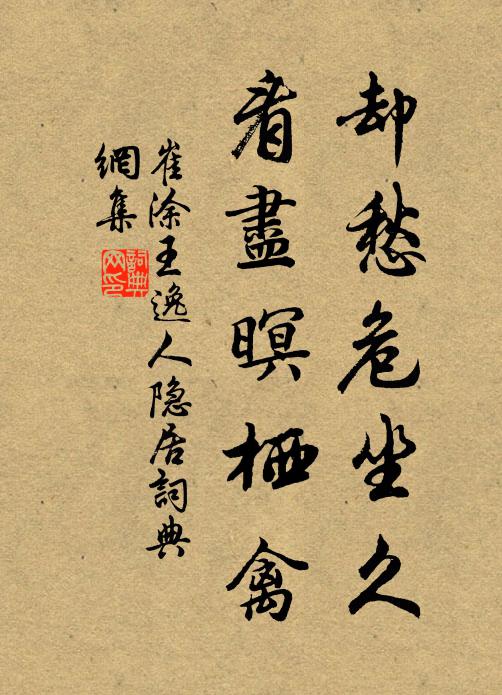 却愁危坐久
看盡暝栖禽
崔涂王逸人隐居詞典
網集
詞典網印